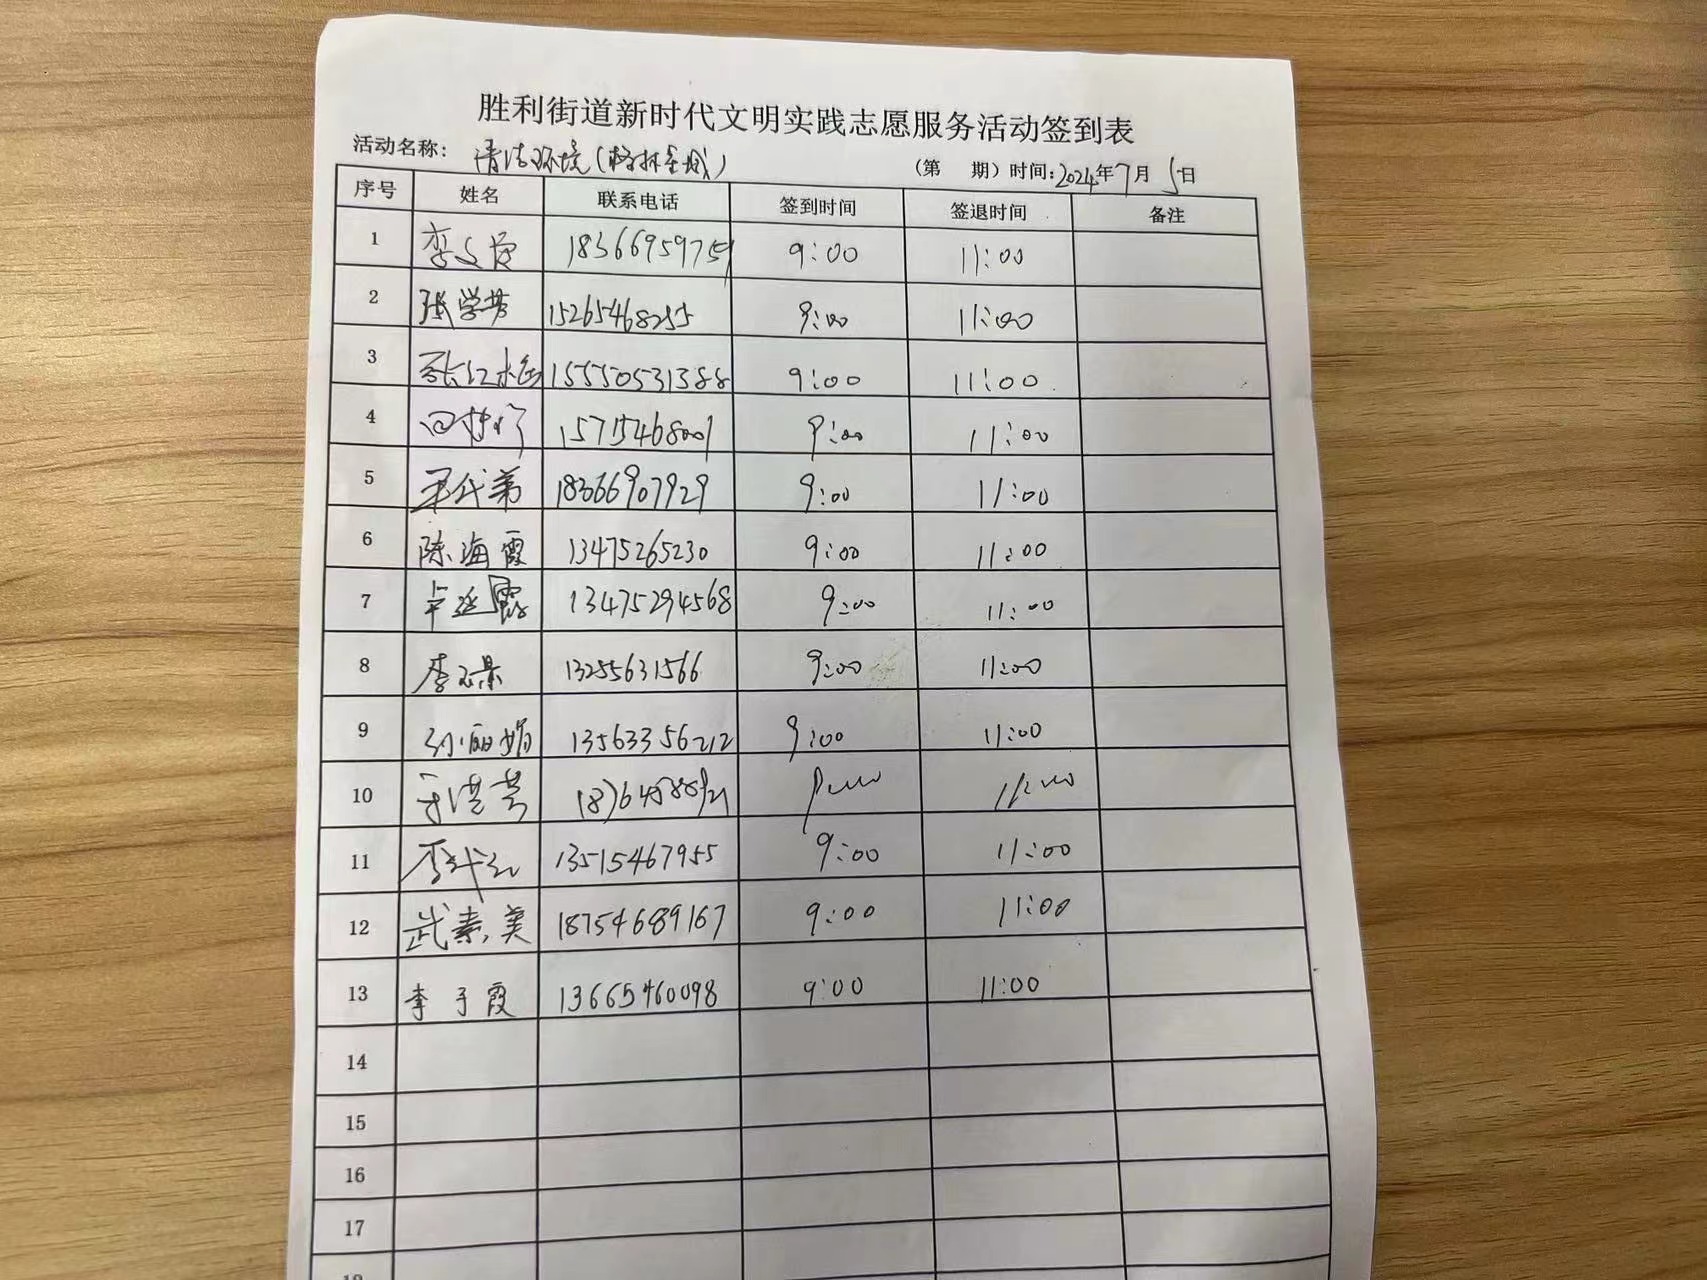 胜利街道新时代文明实践志愿服务活动签到表
活动名称: 清洁环境(格林星城) (第 期)时间:2024年7月5日
序号 姓名 联系电话 签到时间 签退时间 备注
1 李文 18366959759 9:00 11:00
2 张学芳 15265468255 9:00 11:00
3 张江水 15550531388 9:00 11:00
4 15715468001 9:00 11:00
5 代弟 18366907929 9:00 11:00
6 陈海霞 13475265230 9:00 11:00
7 13475294568 9:00 11:00
8 李 13255631566 9:00 11:00
9 孙丽娟 13563356212 9:00 11:00
10 于洪芳 9:00 11:00
11 李代红 13515467955 9:00 11:00
12 武素美 18754689167 9:00 11:00
13 李子霞 13665460098 9:00 11:00
14
15
16
17
18